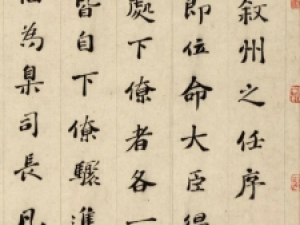 敘州之任序
即位命大臣得
處下僚者各一
皆自下僚驟進
為臬司長凡